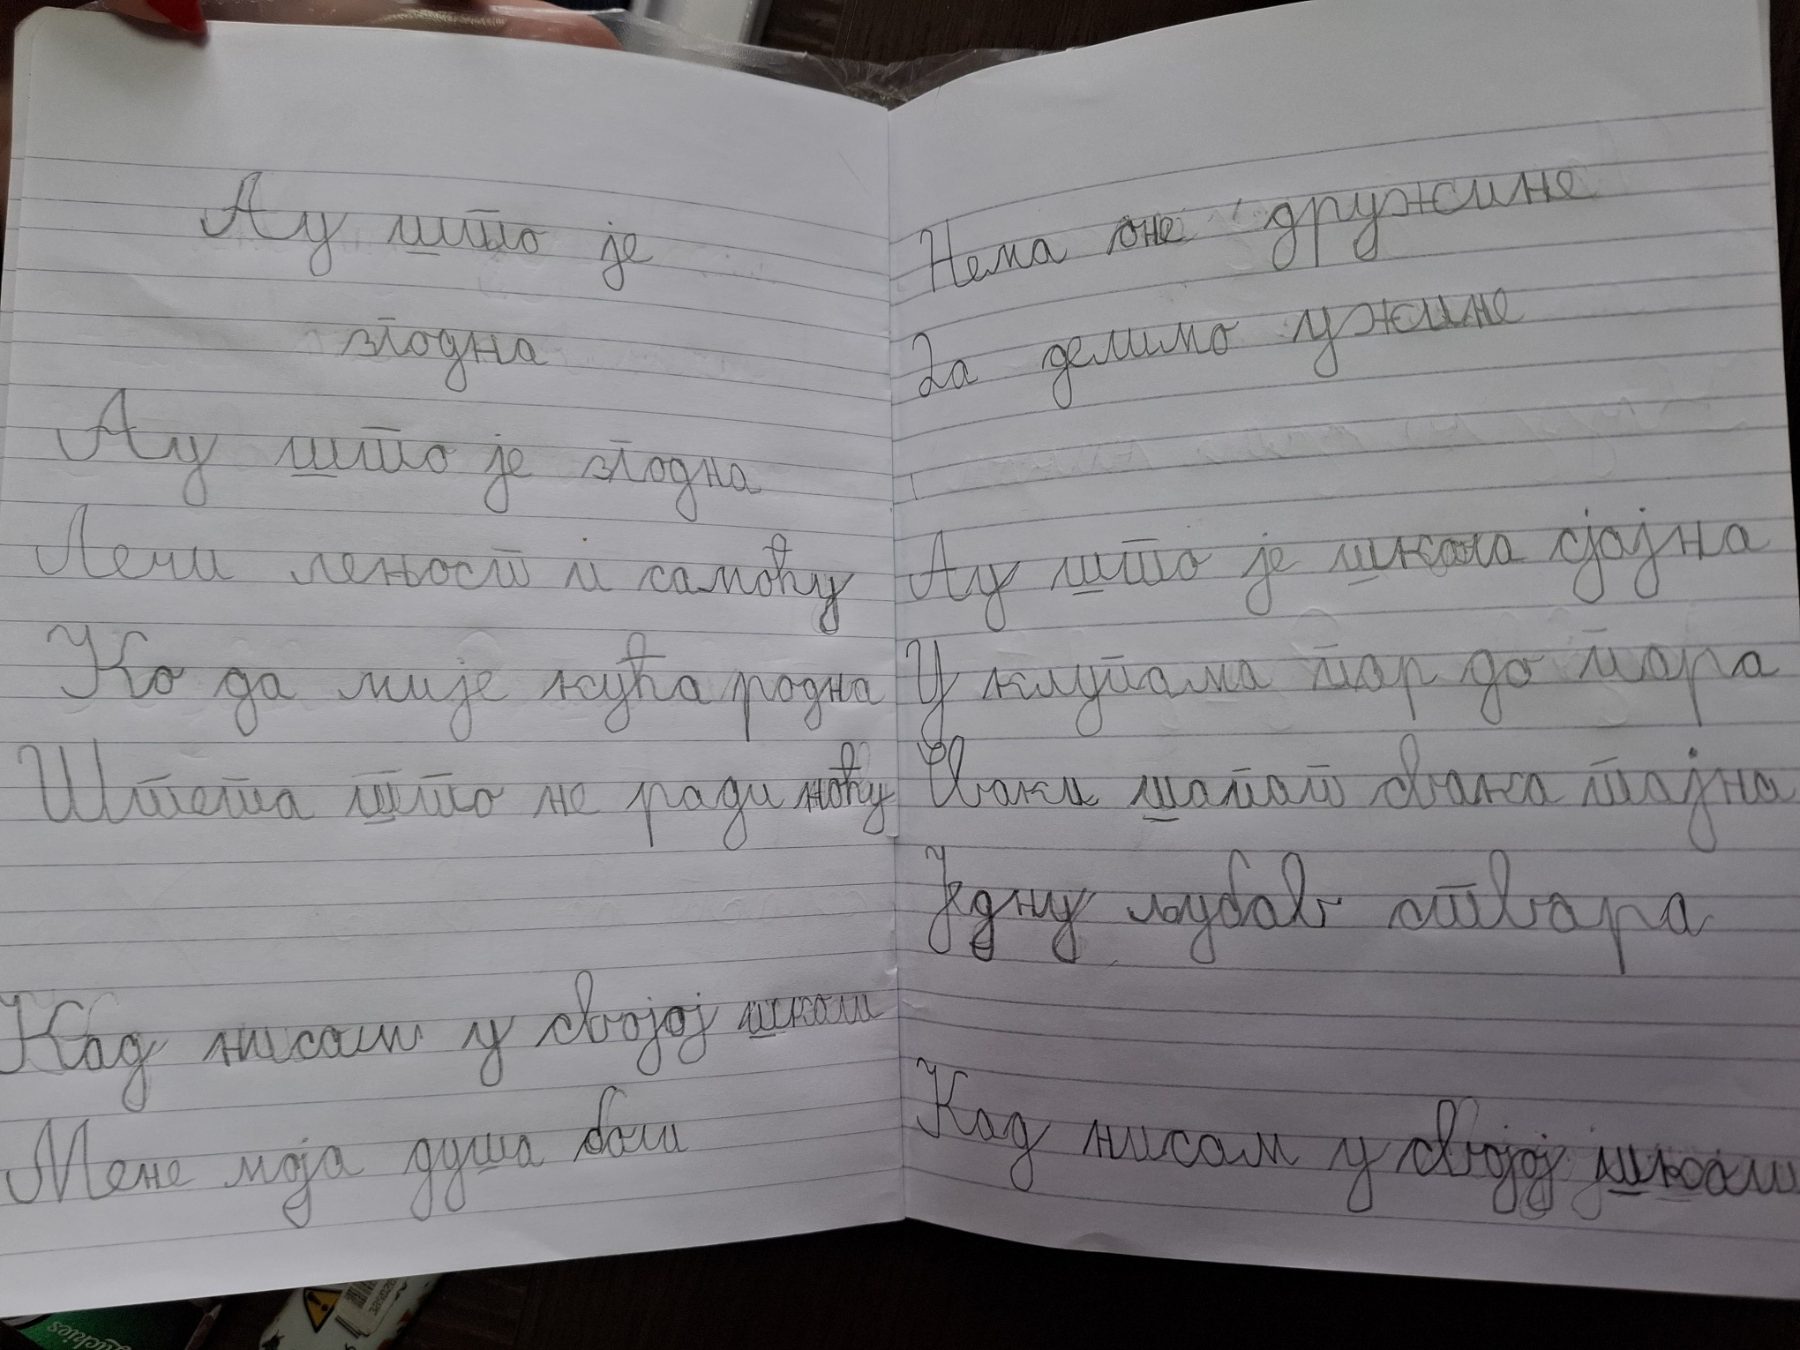 Ау што је
згодна
Ау што је згодна
Лечи леност и самоћу
Ко да ми је кућа родна
Штета што не ради ноћу
Кад нисам у својој школи
Мене моја душа боли
Нема оне дружине
Да делимо ужине
Ау што је школа сјајна
У клупама пар до пара
Сваки шапат свака тајна
Једну љубав ствара
Кад нисам у својој школи